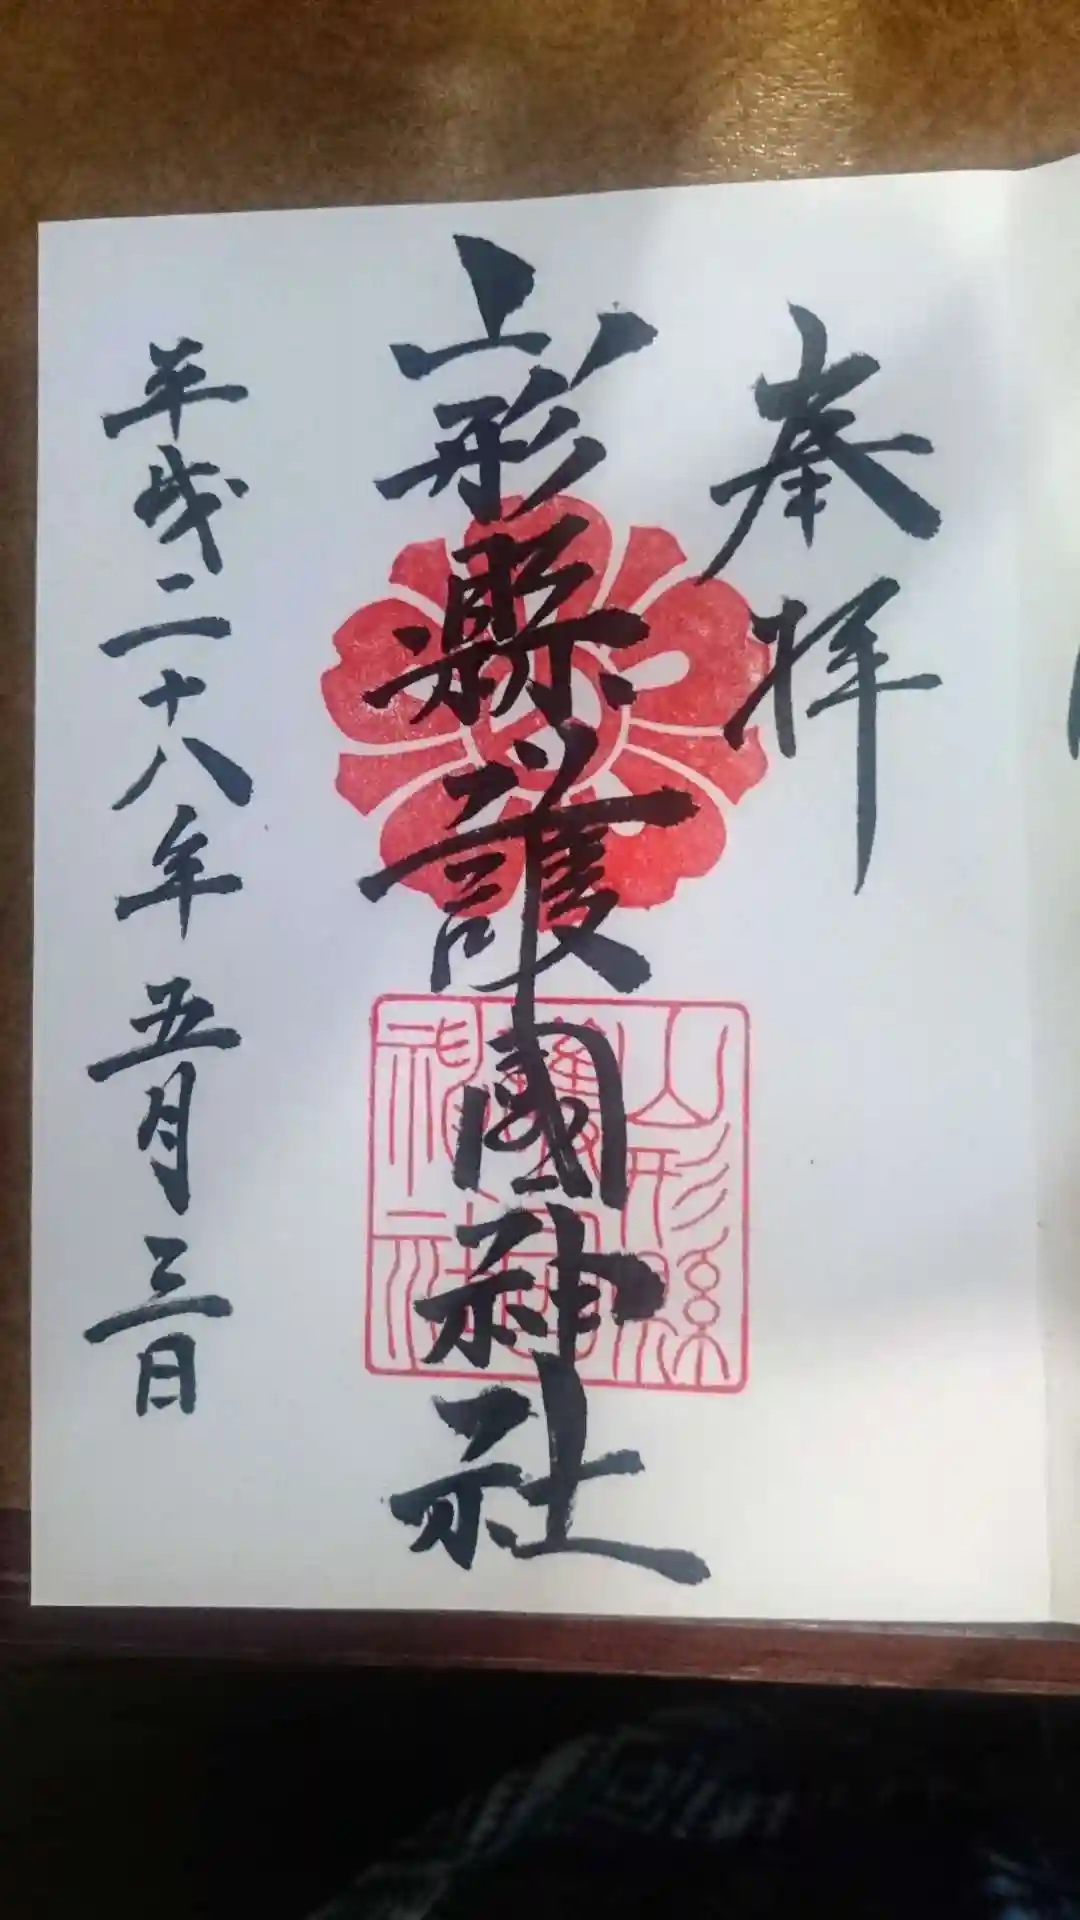 奉拝
山形縣護國神社
山形縣
護國
神社
平成二十八年五月三日